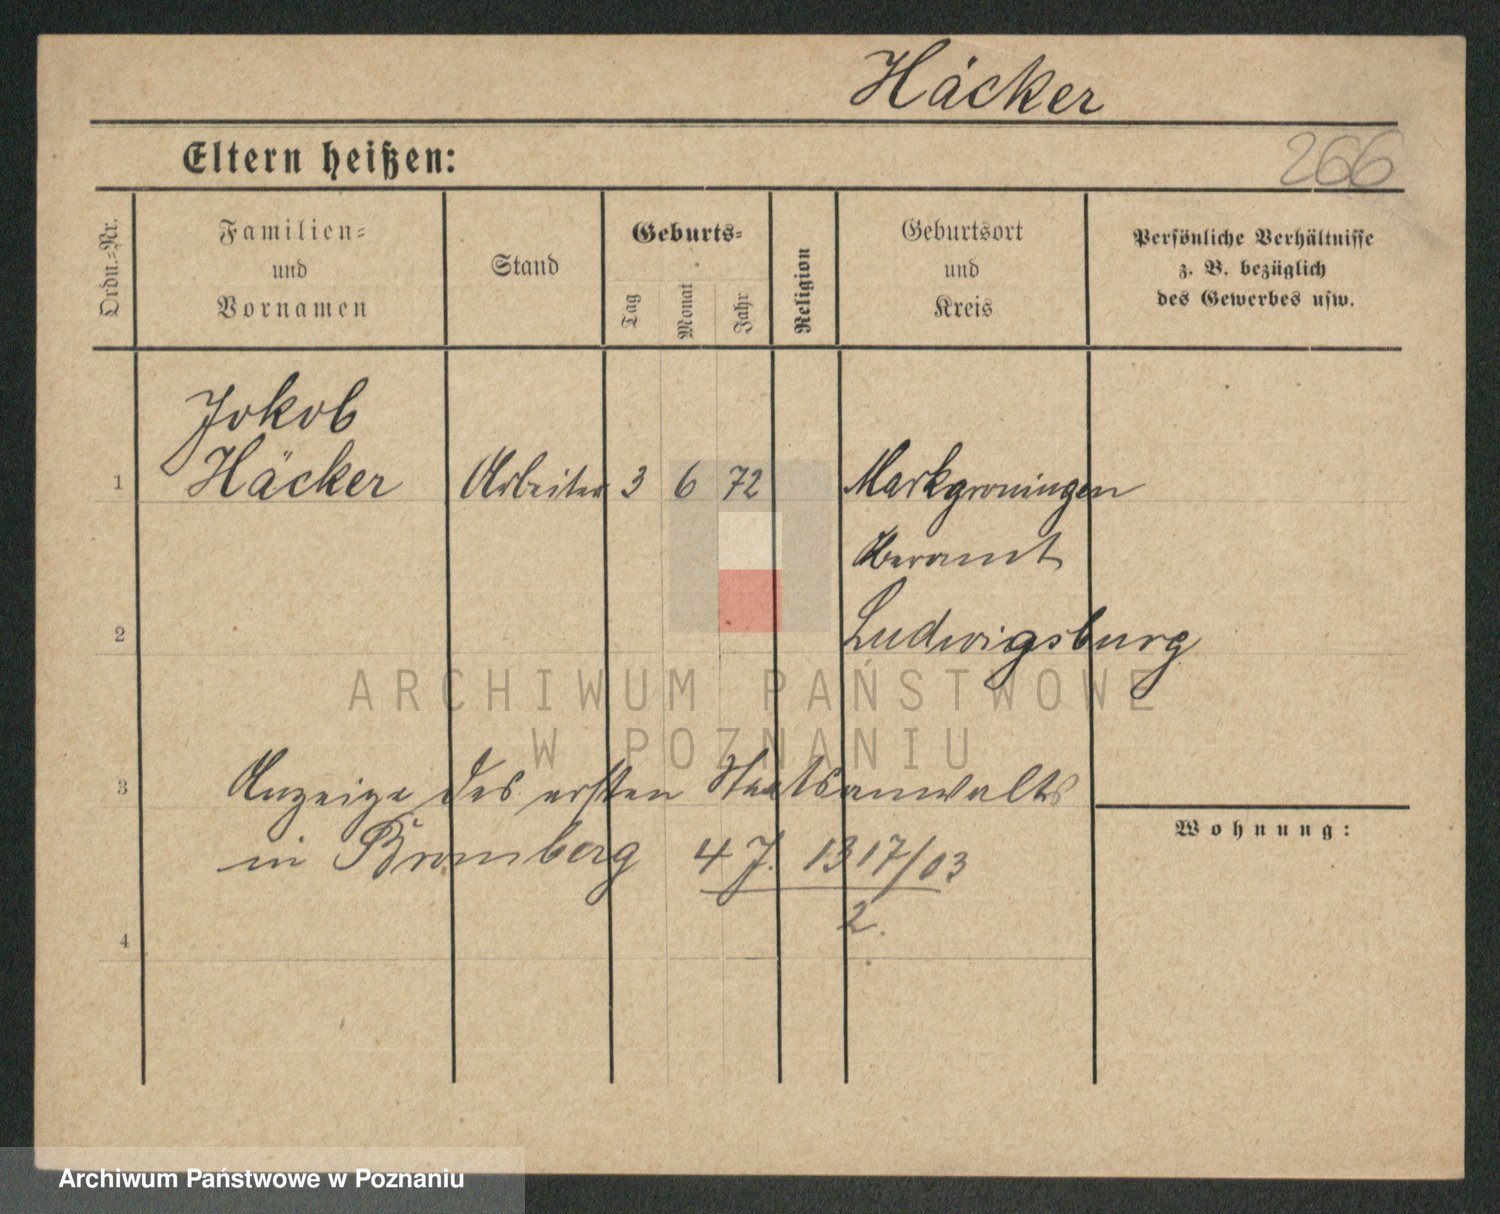 Häcker
266
Eltern heißen:
Ordn.-Nr.
Familien-
und
Vornamen
Stand
Geburts-
Tag
Monat
Jahr
Religion
Geburtsort
und
Kreis
Persönliche Verhältnisse
z. B. bezüglich
des Gewerbes usw.
Jakob
1 Häcker Arbeiter 3 6 72 Markgroningen
Oberamt
2 Ludwigsburg
ARCHIWUM PAŃSTWOWE
W POZNANIU
3 Anzeige des ersten Staatsanwalts
Wohnung:
in Bromberg 4 J. 1317/03
2.
4
Archiwum Państwowe w Poznaniu